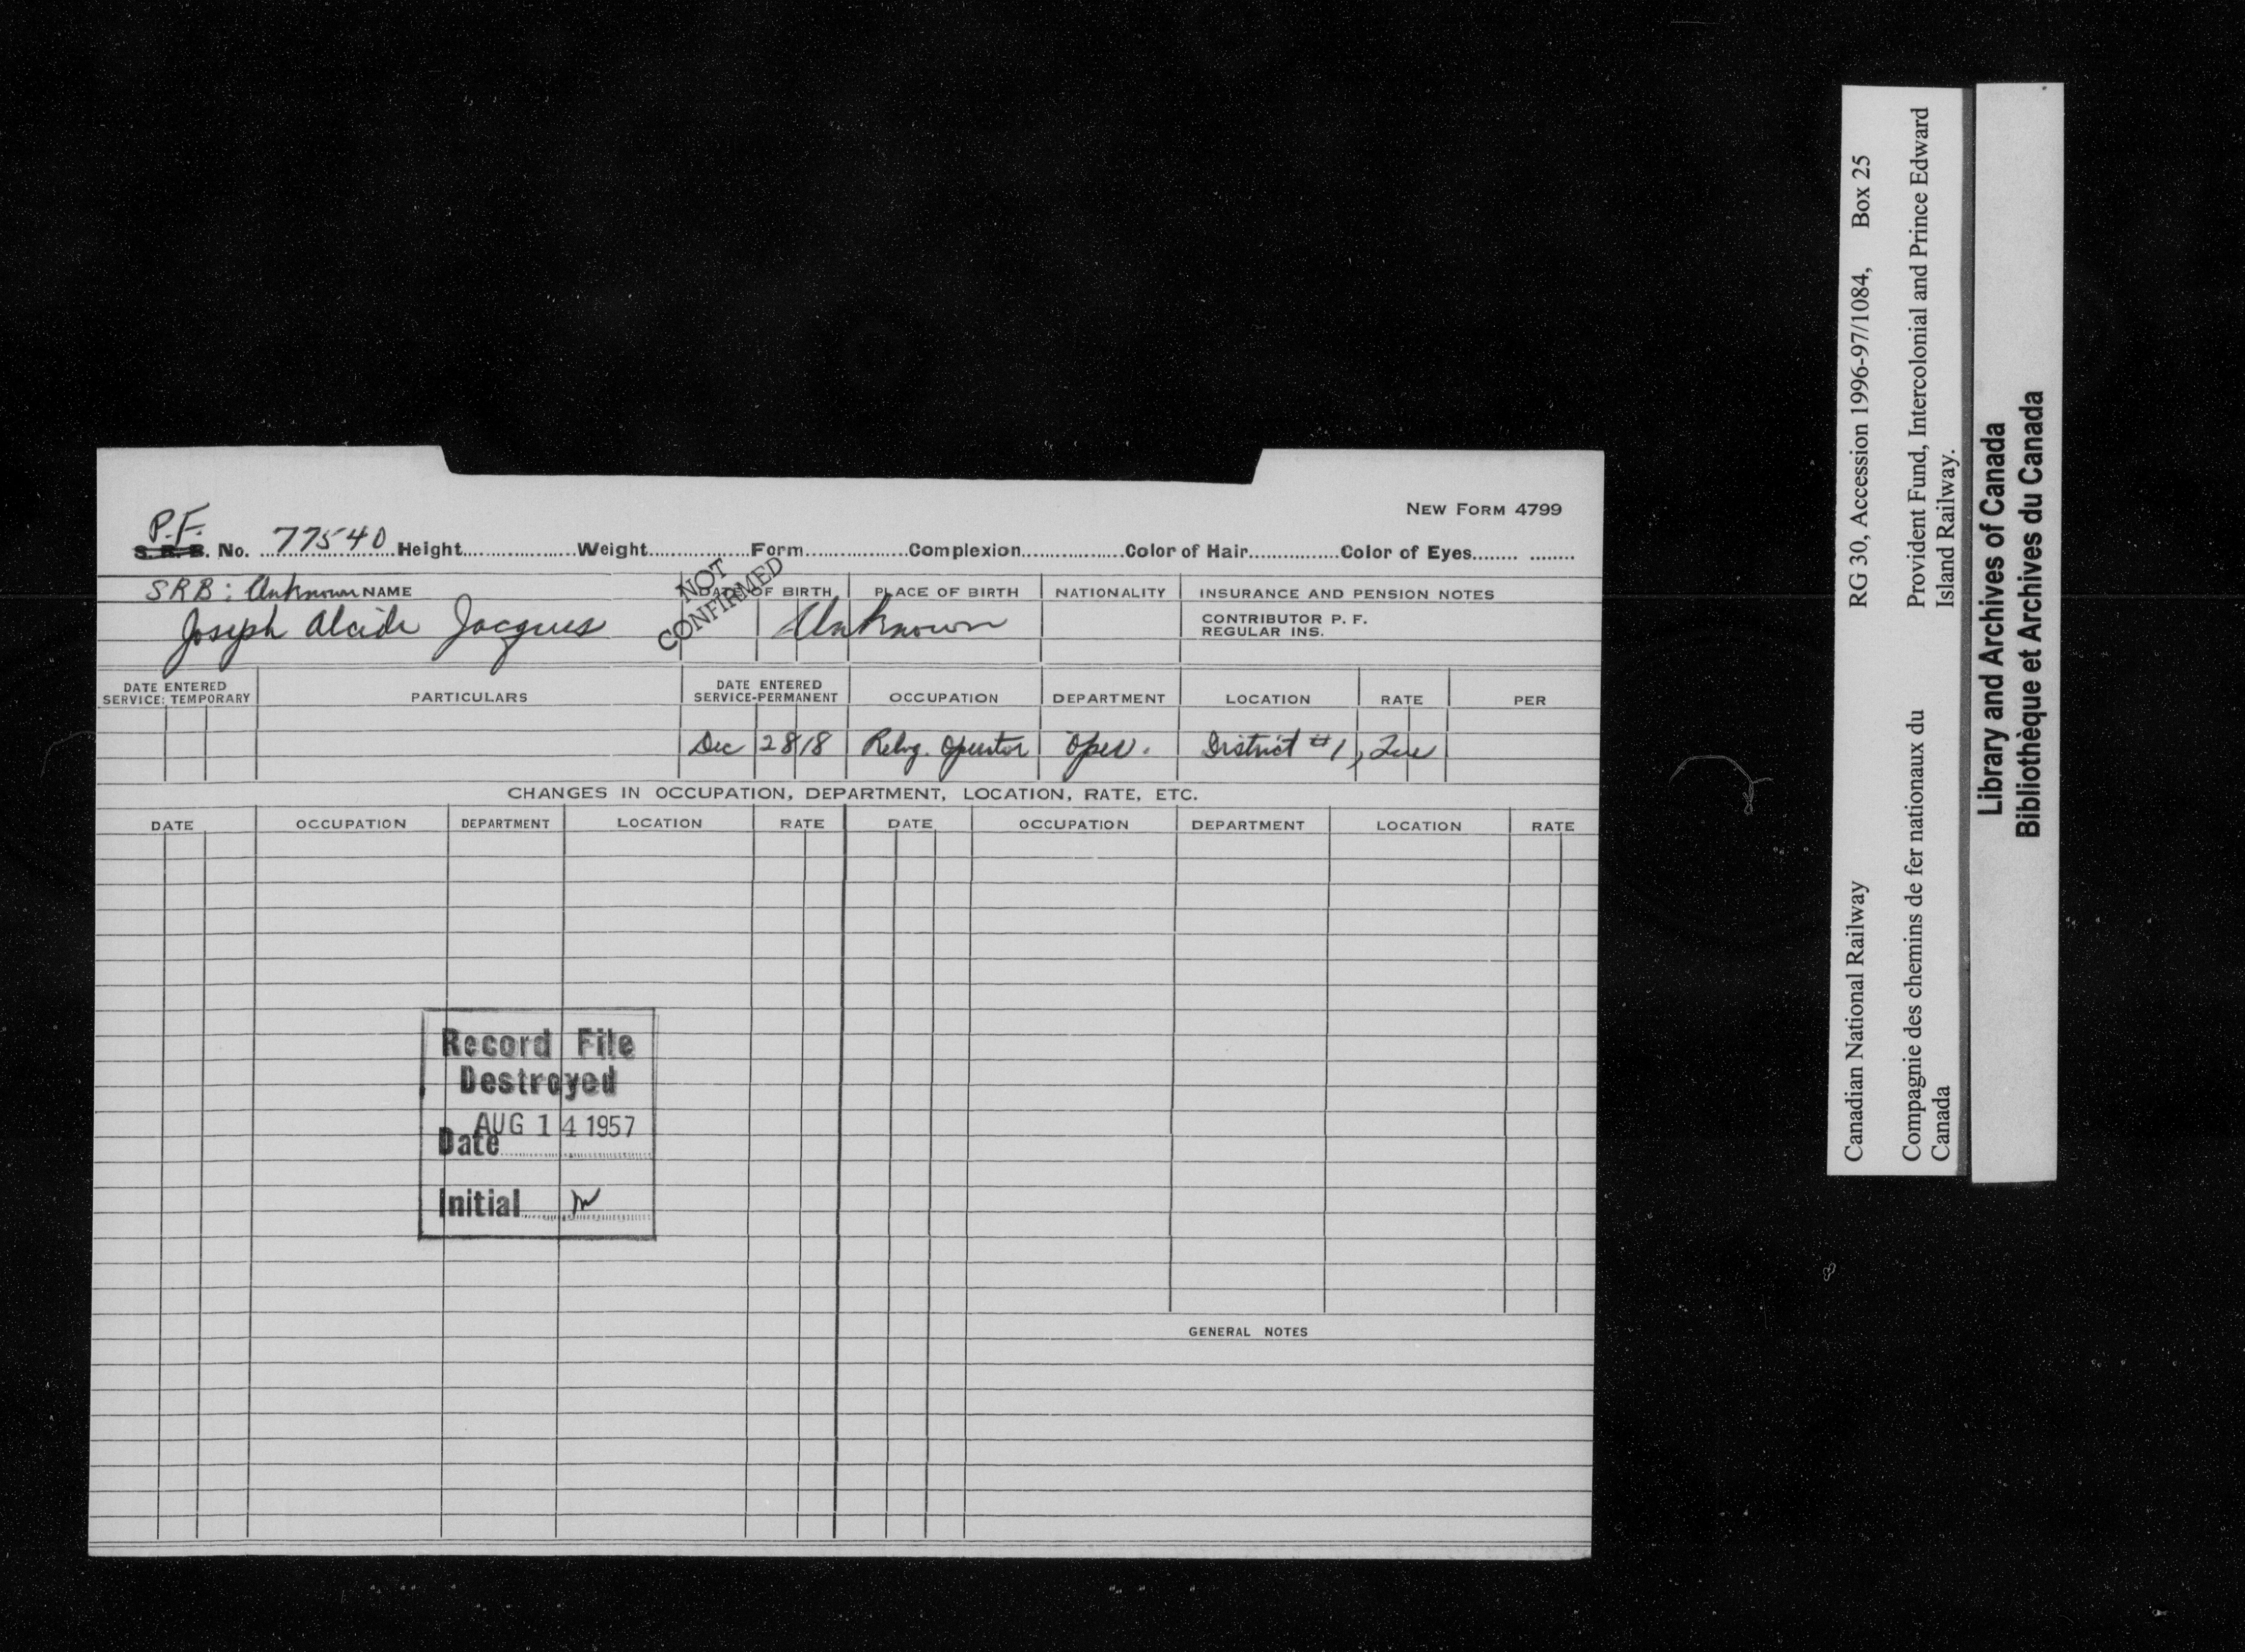 NEW FORM 4799
P.F.
S.R.B. No. 77540 Height Weight Form Complexion Color of Hair Color of Eyes
SRB: Unknown NAME DATE OF BIRTH PLACE OF BIRTH NATIONALITY INSURANCE AND PENSION NOTES
NOT
CONFIRMED
Joseph Alcide Jacques Unknown CONTRIBUTOR P. F.
REGULAR INS.
DATE ENTERED
SERVICE: TEMPORARY PARTICULARS DATE ENTERED
SERVICE-PERMANENT OCCUPATION DEPARTMENT LOCATION RATE PER
Dec 28 18 Relvg. Operator Oper. District #1, Que
CHANGES IN OCCUPATION, DEPARTMENT, LOCATION, RATE, ETC.
DATE OCCUPATION DEPARTMENT LOCATION RATE DATE OCCUPATION DEPARTMENT LOCATION RATE
Record File
Destroyed
AUG 14 1957
Date
Initial
GENERAL NOTES
Canadian National Railway RG 30, Accession 1996-97/1084, Box 25
Compagnie des chemins de fer nationaux du
Canada
Provident Fund, Intercolonial and Prince Edward
Island Railway.
Library and Archives of Canada
Bibliothèque et Archives du Canada